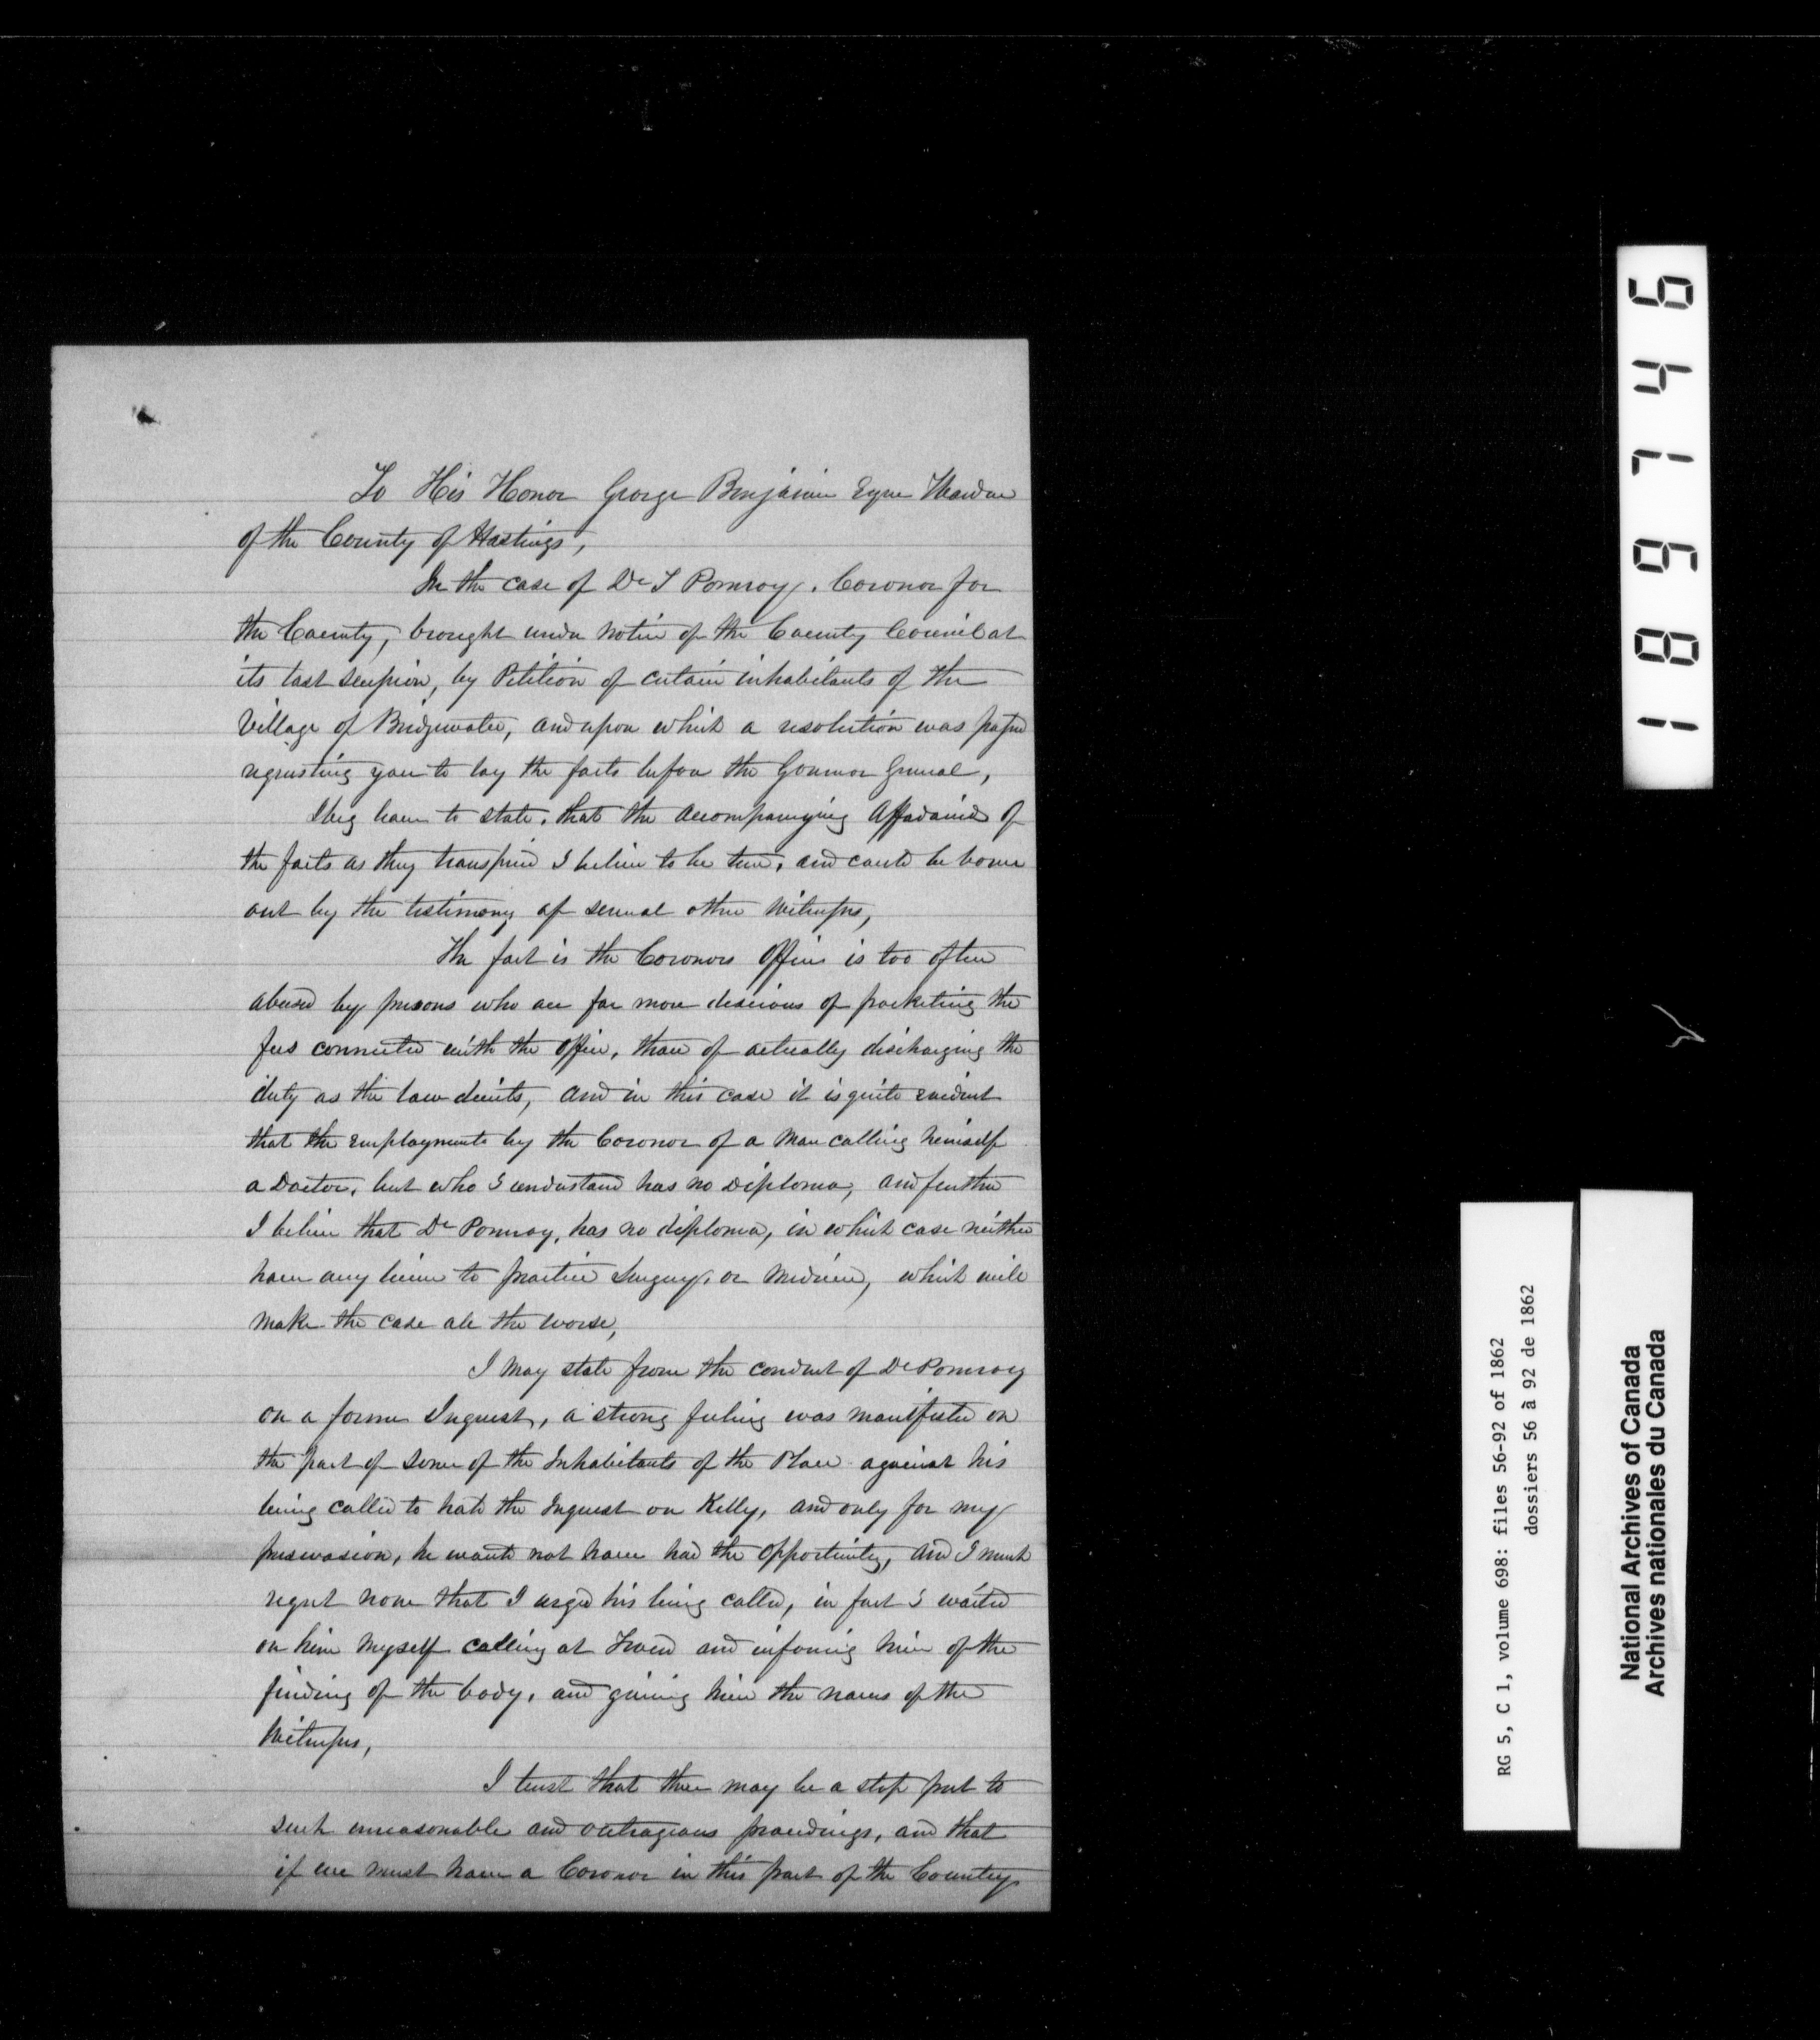 To His Honor George Benjamin Eqre Warden
of the County of Hastings,
In the case of Dr T Pomroy. Coronor for
the County, brought under notice of the County Council at
its last session, by Petition of certain inhabitants of the
Village of Bridgewater, and upon which a resolution was passed
requesting you to lay the facts before the Governor General,
I beg leave to state, that the accompanying Affadavid of
the facts as they transpired I believe to be true, and could be borne
out by the testimony of several other Witnesses,
The fact is the Coronors Office is too often
abused by persons who are far more desirous of pocketing the
fees connected with the office, than of actually discharging the
duty as the law directs, and in this case it is quite evident
that the employment by the Coronor of a man calling himself
a Doctor, but who I understand has no Diploma, and further
I believe that Dr Pomroy, has no diploma, in which case neither
have any license to practice Surgery, or Medicine, which will
make the case all the worse,
I may state from the conduct of Dr Pomroy
on a former Inquest, a strong feeling was manifested on
the part of some of the Inhabitants of the Place against his
being called to hold the Inquest on Kelly, and only for my
perswasion, he would not have had the opportunity, and I much
regret now that I urged his being called, in fact I waited
on him myself calling at Tweed and informing him of the
finding of the body, and giving him the names of the
Witnesses,
I trust that there may be a stop put to
such unreasonable and outrageous proceedings, and that
if we must have a Coronor in this part of the County
189746
RG 5, C 1, volume 698: files 56-92 of 1862
dossiers 56 à 92 de 1862
National Archives of Canada
Archives nationales du Canada